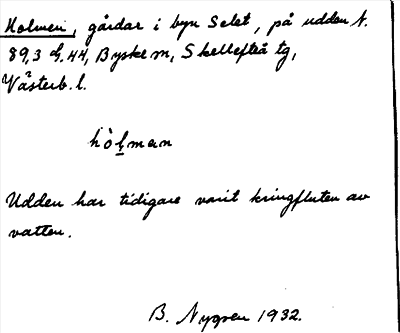 Holmen, gårdar i byn Selet, på udden N.
89,3 G.44, Byske sn, Skellefteå tg,
Västerb. l.
hòlman
Udden har tidigare varit kringfluten av
vatten.
B. Nygren 1932.